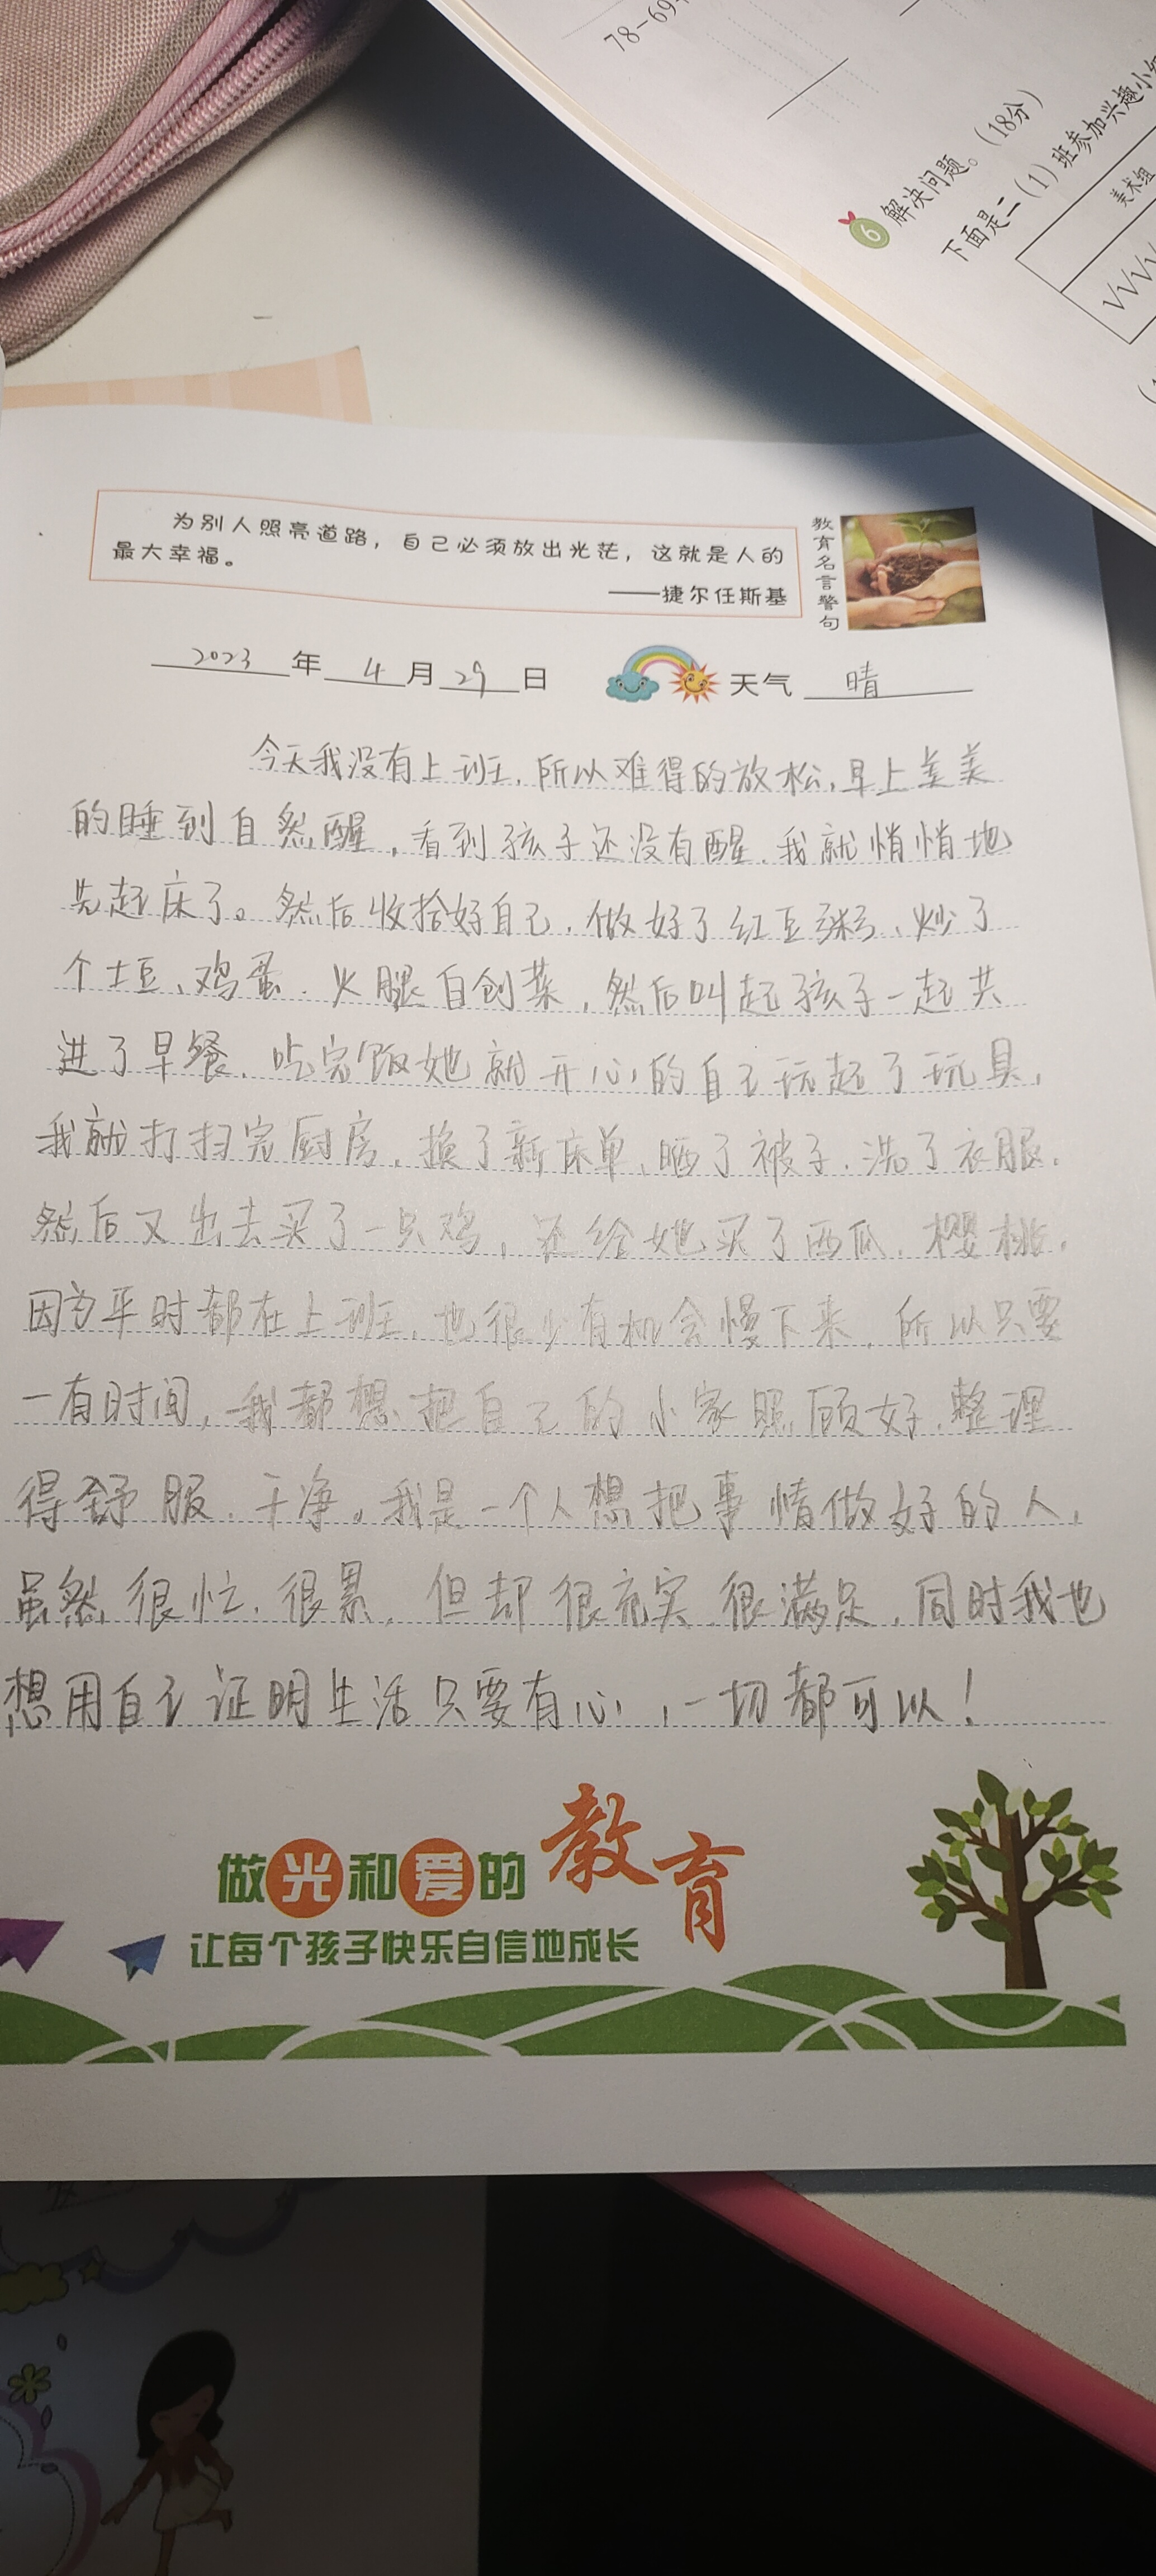 78-69
6 解决问题。(18分)
下面是二(1)班参加兴趣小
美术组
为别人照亮道路，自己必须放出光茫，这就是人的
最大幸福。
——捷尔任斯基
教育名言警句
2023 年 4 月 29 日 天气 晴
今天我没有上班，所以难得的放松，早上美美
的睡到自然醒，看到孩子还没有醒，我就悄悄地
先起床了。然后收拾好自己，做好了红豆粥、炒了
个土豆、鸡蛋、火腿自创菜，然后叫起孩子一起共
进了早餐，吃完饭她就开心的自己玩起了玩具，
我就打扫完厨房，换了新床单，晒了被子，洗了衣服，
然后又出去买了一只鸡，还给她买了西瓜，樱桃，
因为平时都在上班，也很少有机会慢下来，所以只要
一有时间，我都想把自己的小家照顾好，整理
得舒服、干净。我是一个人想把事情做好的人，
虽然很忙，很累，但却很充实 很满足，同时我也
想用自己证明生活只要有心，一切都可以！
做光和爱的教育
让每个孩子快乐自信地成长